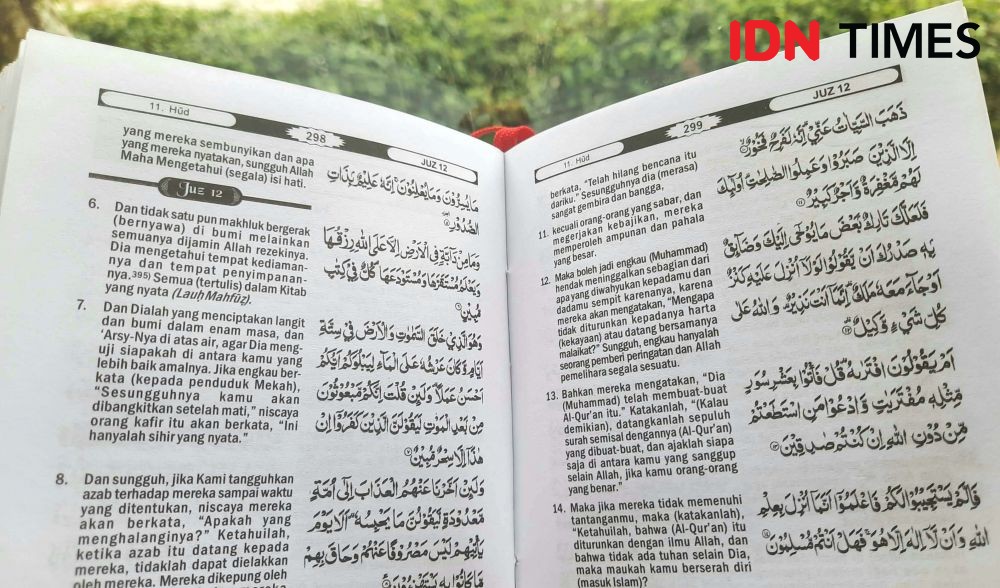 IDN TIMES
11. Hūd
298
JUZ 12
yang mereka sembunyikan dan apa
yang mereka nyatakan, sungguh Allah
Maha Mengetahui (segala) isi hati.
Juz 12
6. Dan tidak satu pun makhluk bergerak
(bernyawa) di bumi melainkan
semuanya dijamin Allah rezekinya.
Dia mengetahui tempat kediaman-
nya dan tempat penyimpanan-
nya.395) Semua (tertulis) dalam Kitab
yang nyata (Lauḥ Maḥfūẓ).
7. Dan Dialah yang menciptakan langit
dan bumi dalam enam masa, dan
'Arsy-Nya di atas air, agar Dia meng-
uji siapakah di antara kamu yang
lebih baik amalnya. Jika engkau ber-
kata (kepada penduduk Mekah),
"Sesungguhnya kamu akan
dibangkitkan setelah mati," niscaya
orang kafir itu akan berkata, "Ini
hanyalah sihir yang nyata."
8. Dan sungguh, jika Kami tangguhkan
azab terhadap mereka sampai waktu
yang ditentukan, niscaya mereka
akan berkata, "Apakah yang
menghalanginya?" Ketahuilah,
ketika azab itu datang kepada
mereka, tidaklah dapat dielakkan
oleh mereka. Mereka dikepung oleh
مَا يُسِرُّوْنَ وَمَا يُعْلِنُوْنَۚ اِنَّهٗ عَلِيْمٌ ۢبِذَاتِ
الصُّدُوْرِ ٥
وَمَا مِنْ دَاۤبَّةٍ فِى الْاَرْضِ اِلَّا عَلَى اللّٰهِ رِزْقُهَا
وَيَعْلَمُ مُسْتَقَرَّهَا وَمُسْتَوْدَعَهَاۗ كُلٌّ فِيْ كِتٰبٍ
مُّبِيْنٍ ٦
وَهُوَ الَّذِيْ خَلَقَ السَّمٰوٰتِ وَالْاَرْضَ فِيْ سِتَّةِ
اَيَّامٍ وَّكَانَ عَرْشُهٗ عَلَى الْمَاۤءِ لِيَبْلُوَكُمْ اَيُّكُمْ
اَحْسَنُ عَمَلًاۗ وَلَىِٕنْ قُلْتَ اِنَّكُمْ مَّبْعُوْثُوْنَ
مِنْۢ بَعْدِ الْمَوْتِ لَيَقُوْلَنَّ الَّذِيْنَ كَفَرُوْٓا اِنْ
هٰذَآ اِلَّا سِحْرٌ مُّبِيْنٌ ٧
وَلَىِٕنْ اَخَّرْنَا عَنْهُمُ الْعَذَابَ اِلٰٓى اُمَّةٍ
مَّعْدُوْدَةٍ لَّيَقُوْلُنَّ مَا يَحْبِسُهٗۗ اَلَا يَوْمَ
يَأْتِيْهِمْ لَيْسَ مَصْرُوْفًا عَنْهُمْ وَحَاقَ بِهِمْ
مَّا كَانُوْا بِهٖ يَسْتَهْزِءُوْنَ ٨
11. Hūd
299
JUZ 12
berkata, "Telah hilang bencana itu
dariku." Sesungguhnya dia (merasa)
sangat gembira dan bangga,
11. kecuali orang-orang yang sabar, dan
megerjakan kebajikan, mereka
memperoleh ampunan dan pahala
yang besar.
12. Maka boleh jadi engkau (Muhammad)
hendak meninggalkan sebagian dari
apa yang diwahyukan kepadamu dan
dadamu sempit karenanya, karena
mereka akan mengatakan, "Mengapa
tidak diturunkan kepadanya harta
(kekayaan) atau datang bersamanya
malaikat?" Sungguh, engkau hanyalah
seorang pemberi peringatan dan Allah
pemelihara segala sesuatu.
13. Bahkan mereka mengatakan, "Dia
(Muhammad) telah membuat-buat
Al-Qur'an itu." Katakanlah, "(Kalau
demikian), datangkanlah sepuluh
surah semisal dengannya (Al-Qur'an)
yang dibuat-buat, dan ajaklah siapa
saja di antara kamu yang sanggup
selain Allah, jika kamu orang-orang
yang benar."
14. Maka jika mereka tidak memenuhi
tantanganmu, maka (katakanlah),
"Ketahuilah, bahwa (Al-Qur'an) itu
diturunkan dengan ilmu Allah, dan
bahwa tidak ada tuhan selain Dia,
maka maukah kamu berserah diri
(masuk Islam)?
ذَهَبَ السَّيِّاٰتُ عَنِّيْۗ اِنَّهٗ لَفَرِحٌ فَخُوْرٌۙ ١٠
اِلَّا الَّذِيْنَ صَبَرُوْا وَعَمِلُوا الصّٰلِحٰتِۗ اُولٰۤىِٕكَ
لَهُمْ مَّغْفِرَةٌ وَّاَجْرٌ كَبِيْرٌ ١١
فَلَعَلَّكَ تَارِكٌۢ بَعْضَ مَا يُوْحٰٓى اِلَيْكَ وَضَاۤىِٕقٌۢ
بِهٖ صَدْرُكَ اَنْ يَّقُوْلُوْا لَوْلَآ اُنْزِلَ عَلَيْهِ كَنْزٌ
اَوْ جَاۤءَ مَعَهٗ مَلَكٌۗ اِنَّمَآ اَنْتَ نَذِيْرٌۗ وَاللّٰهُ عَلٰى
كُلِّ شَيْءٍ وَّكِيْلٌۗ ١٢
اَمْ يَقُوْلُوْنَ افْتَرٰىهُۗ قُلْ فَأْتُوْا بِعَشْرِ سُوَرٍ
مِّثْلِهٖ مُفْتَرَيٰتٍ وَّادْعُوْا مَنِ اسْتَطَعْتُمْ
مِّنْ دُوْنِ اللّٰهِ اِنْ كُنْتُمْ صٰدِقِيْنَ ١٣
فَاِلَّمْ يَسْتَجِيْبُوْا لَكُمْ فَاعْلَمُوْٓا اَنَّمَآ اُنْزِلَ بِعِلْمِ
اللّٰهِ وَاَنْ لَّآ اِلٰهَ اِلَّا هُوَۚ فَهَلْ اَنْتُمْ مُّسْلِمُوْنَ ١٤